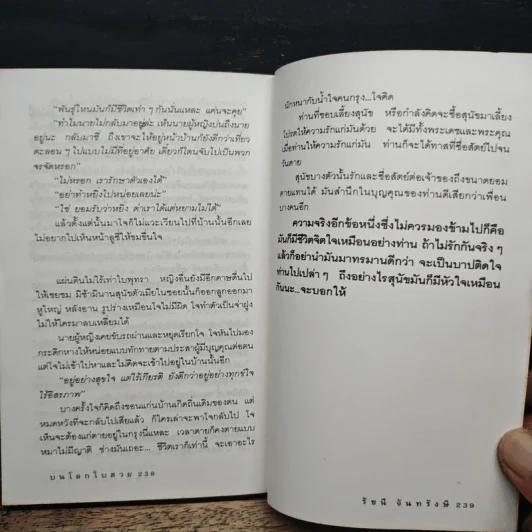 “พันธุ์ไหนมันก็มีชีวิตเท่า ๆ กันนั่นแหละ แต่นจะคุย”
“ทำไมนายไม่กลับมาอยู่ล่ะ เห็นนายผู้หญิงบ่นถึงนาย
อยู่นะ กลับมาซี ถึงเขาจะให้อยู่หน้าบ้านก็ยังดีกว่าเที่ยว
ตะลอน ๆ ไปแบบไม่มีที่อยู่อาศัย เดี๋ยวก็โดนจับไปเป็นพวก
จรจัดหรอก”
“ไม่หรอก เรารักษาตัวเองได้”
“อย่าทำหยิ่งไปหน่อยเลยน่ะ”
“ใช่ ยอมรับว่าหยิ่ง ด่าเราได้แต่หยามไม่ได้”
แล้วตั้งแต่นั้นมาใจก็ไม่แวะเวียนไปที่บ้านนั้นอีกเลย
ไม่อยากไปเห็นหน้าลูซี่ให้ขมขื่นใจ
แผ่นดินไม่ไร้เท่าใบพุทรา หญิงอื่นยังมีอีกดาษดื่นไป
ให้เชยชม มิช้ามินานสุนัขตัวเมียในซอยนั้นก็ออกลูกออกมา
หูใหญ่ หลังอาน รูปร่างเหมือนใจไม่มีผิด ใจทำตัวเป็นจ่าฝูง
ไม่ให้ใครมาลบเหลี่ยมได้
นายผู้หญิงเคยขับรถผ่านและหยุดเรียกใจ ใจหันไปมอง
กระดิกหางให้หน่อยแบบทักทายตามประสาผู้มีบุญคุณต่อตน
แต่ใจไม่เข้าไปหาและไม่คิดจะเข้าไปอยู่ในบ้านนั้นอีก
“อยู่อย่างสุขใจ แต่ไร้เกียรติ ยังดีกว่าอยู่อย่างทุกข์ใจ
ไร้อิสรภาพ”
บางครั้งใจก็คิดถึงขอนแก่นบ้านเกิดถิ่นเดิมของตน แต่
หมดหวังที่จะกลับไปเสียแล้ว ก็ใครเล่าจะพาใจกลับไป ใจ
เห็นจะต้องแก่ตายอยู่ในกรุงนี่แหละ เวลาตายก็คงตายแบบ
หมาไม่มีญาติ ช่างมันเถอะ... ชีวิตเราก็เท่านี้ จะเอาอะไร
บนโลกใบสวย 238
นักหนากับน้ำใจคนกรุง...ใจคิด
ท่านที่ชอบเลี้ยงสุนัข หรือกำลังคิดจะซื้อสุนัขมาเลี้ยง
โปรดให้ความรักแก่มันด้วย จะได้มีทั้งพระเดชและพระคุณ
เมื่อท่านให้ความรักแก่มัน ท่านก็จะได้ทาสที่ซื่อสัตย์ไปจน
วันตาย
สุนัขบางตัวนั้นรักและซื่อสัตย์ต่อเจ้าของถึงขนาดยอม
ตายแทนได้ มันสำนึกในบุญคุณของท่านดีเสียกว่าเพื่อน
บางคนอีก
ความจริงอีกข้อหนึ่งซึ่งไม่ควรมองข้ามไปก็คือ
มันก็มีชีวิตจิตใจเหมือนอย่างท่าน ถ้าไม่รักกันจริง ๆ
แล้วก็อย่านำมันมาทรมานดีกว่า จะเป็นบาปติดใจ
ท่านไปเปล่า ๆ ถึงอย่างไรสุนัขมันก็มีหัวใจเหมือน
กันนะ...จะบอกให้
รัชนี จันทรังษี 239